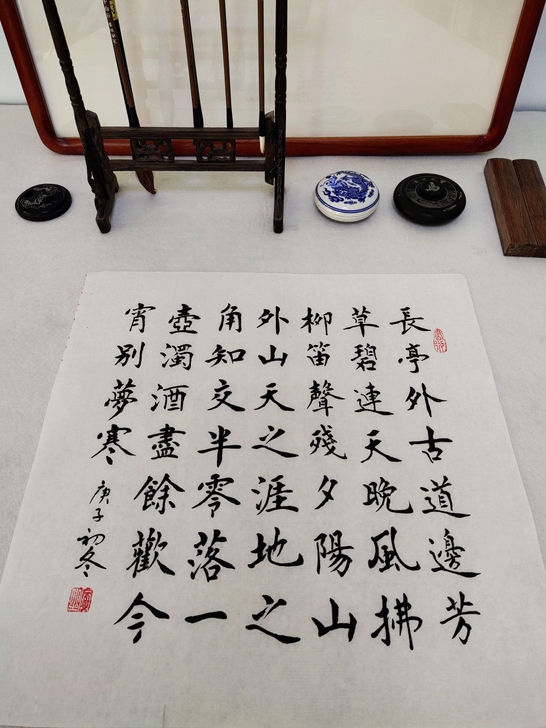 長亭外古道邊芳
草碧連天晚風拂
柳笛聲殘夕陽山
外山天之涯地之
角知交半零落一
壺濁酒盡餘歡今
宵別夢寒
庚子初冬